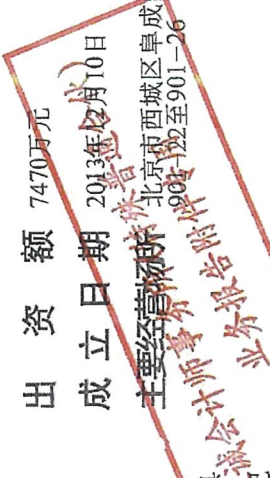 出资额 7470万元
成立日期 2013年12月10日
主要经营场所 北京市西城区阜成
901-22至901-26
诚会计师事务所（特殊普通合伙）
业务报告附件专用